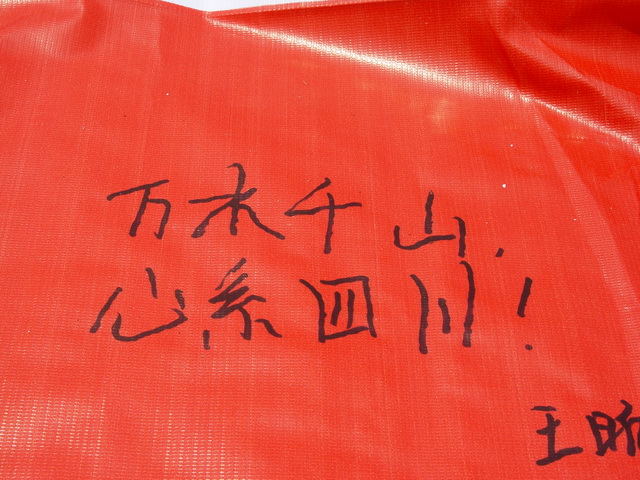 万水千山,
心系四川!
王昕